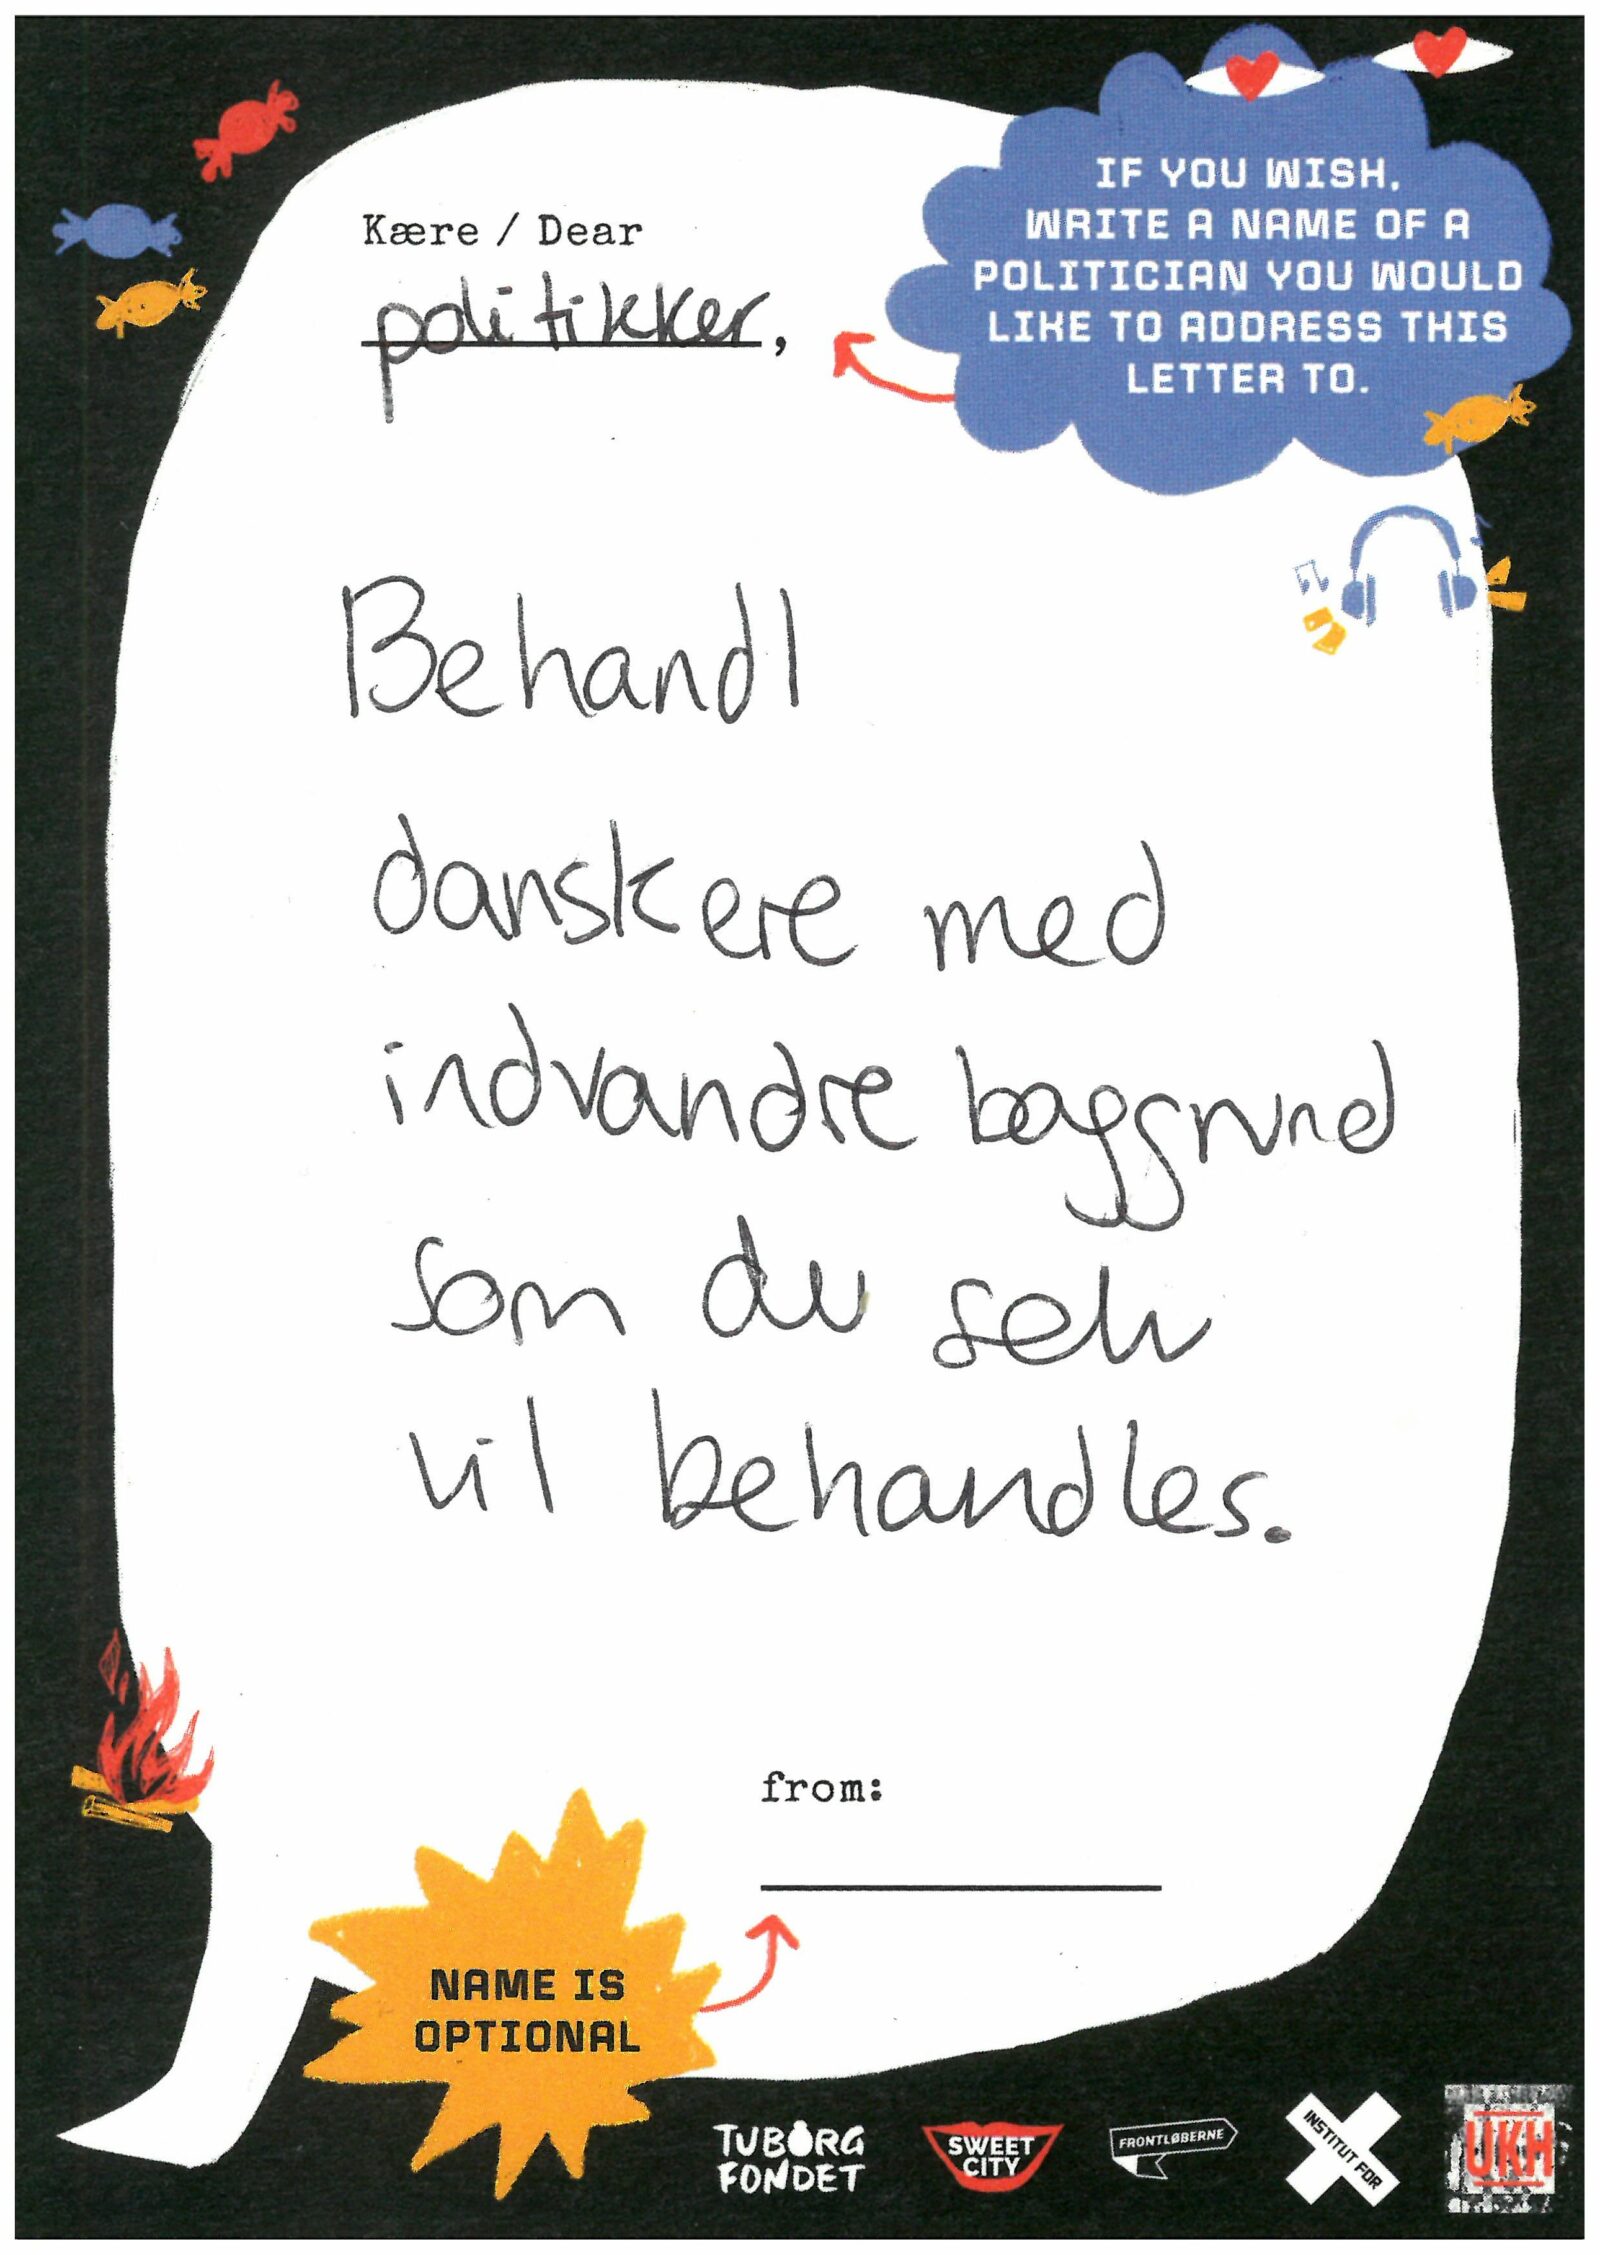 IF YOU WISH,
WRITE A NAME OF A
POLITICIAN YOU WOULD
LIKE TO ADDRESS THIS
LETTER TO.
Kære / Dear
politikker,
Behandl
danskere med
indvandre baggrund
som du selv
vil behandles.
from:
NAME IS
OPTIONAL
TUBORG
FONDET
SWEET
CITY
FRONTLØBERNE
INSTITUT FOR
UKH